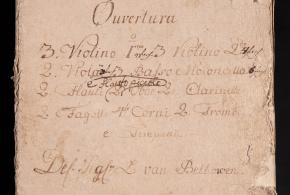 Ouvertura
a
3. Violino 1mo 3 Violino 2do
2. Viola 3 Basso e Violoncello
e Flauto piccolo
2 Flauti 2 Oboe 2 Clarinetti
2 Fagotti 4 Corni 2 Trombe
e Timpani
Del Sigr L van Bethowen